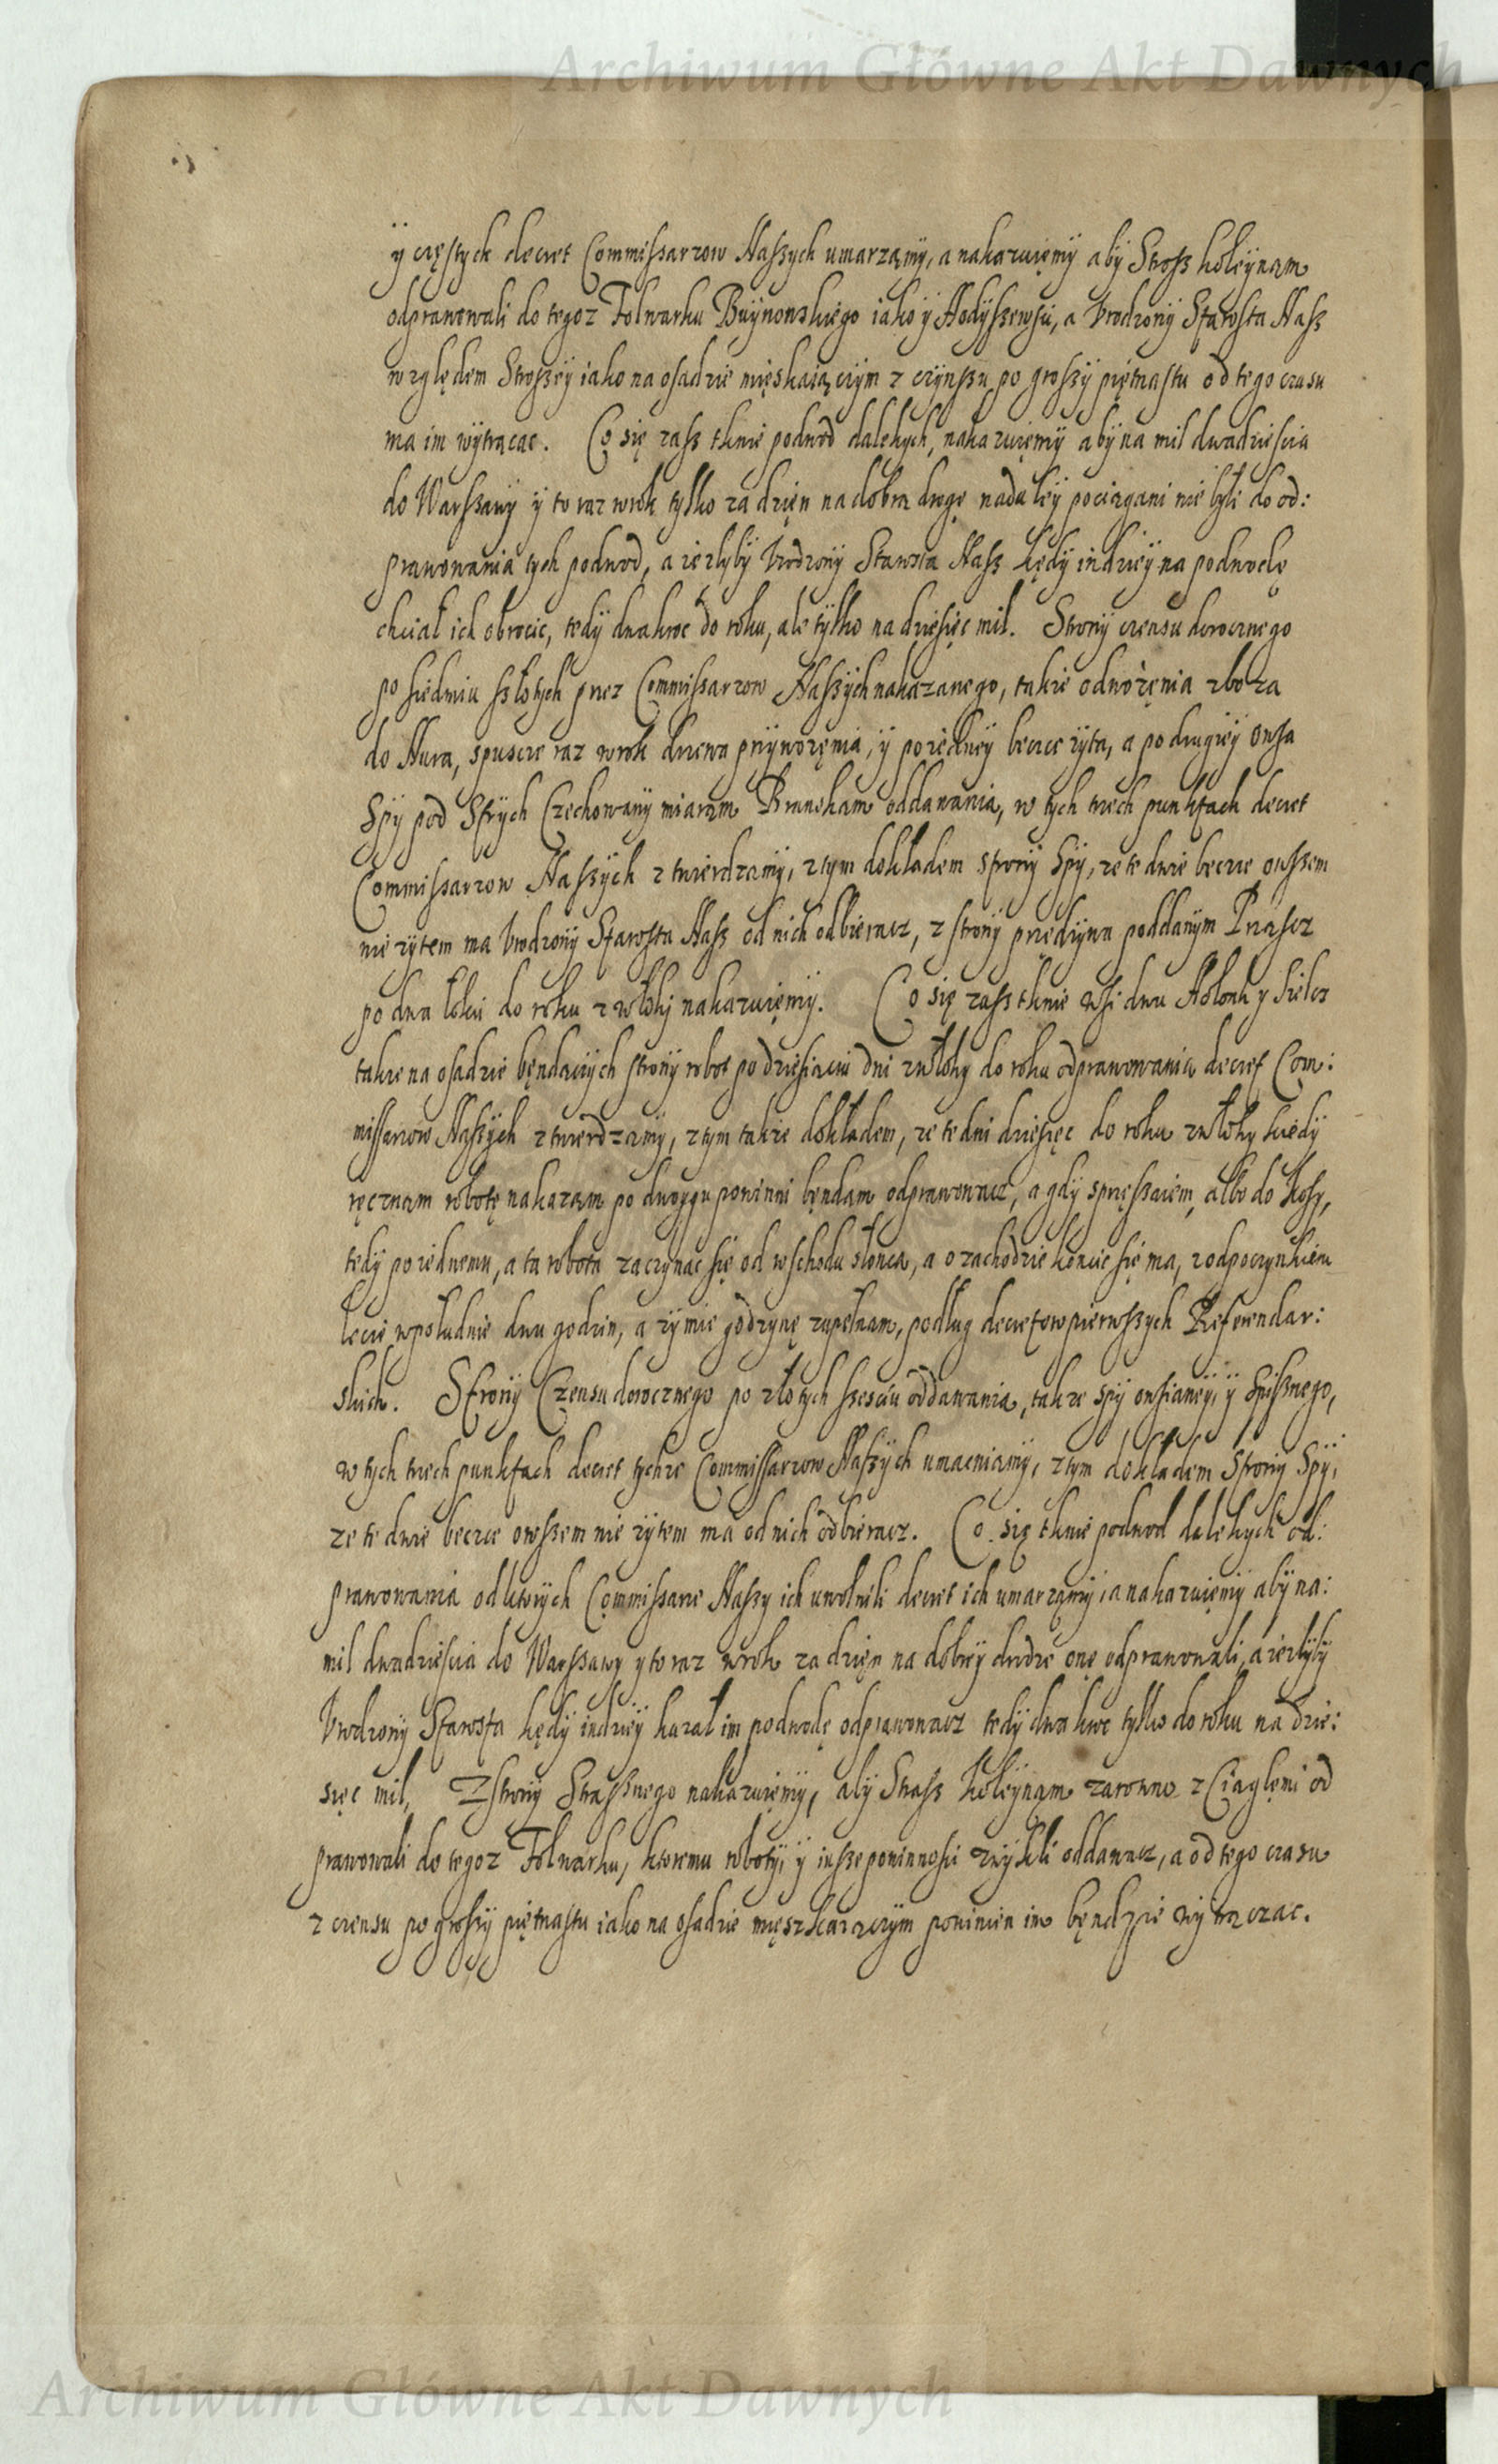 Archiwum Główne Akt Dawnych
ÿ częstych decret Commissarzow Naszych umarzamÿ, a nakazuięmÿ abÿ Strosz koleÿnam
odprawowali do tegoz Folwarku Buÿnowskiego iako ÿ Hodÿszewscÿ, a Vrodzonÿ Starosta Nasz
względem Stroszeÿ iako na osadzie mięskaiącÿm z czÿnszu po groszÿ piętnastu od tego czasu
ma im wÿtrącac. Co się zasz tknie podwod dalekich, nakazuięmÿ abÿ na mil dwadziescia
do Warszawÿ ÿ to raz w rok tylko za dzięn na dobra drogę nadaleÿ pociagani nie byli do od:
prawowania tych podwod, a iezlybÿ Vrodzonÿ Starosta Nasz kędÿ indzieÿ na podwodę
chciał ich obrocic, tedÿ dwakroc do roku, ale tÿlko na dziesięc mil. Stronÿ czensu dorocznego
po siedmiu szłotych przez Commissarzow Naszÿch nakazanego, takze odwozęnia zboza
do Nura, spuscie raz w rok drzewa przÿwozęnia, ÿ po iedneÿ becce zÿta, a po drugieÿ owsa
Spÿ pod Strÿch Czechowanÿ miaram Branskam oddawania, w tych trzech punktach decret
Commissarzow Naszÿch ztwierdzamÿ, z tym dokładem stronÿ Spÿ, ze te dwie becce owszem
nie zÿtem ma Vrodzonÿ Starosta Nasz od nich odbieracz, z stronÿ przędziwa poddanÿm Prząscz
po dwa łokci do roku z włokj nakazuięmÿ. Co się zasz tknie wsi dwu Hołonk y Sielcz
takze na osadzie będacÿch stronÿ robot po dziesiąciu dni z włoky do roku odprawowania decret Com:
missarzow Naszÿch ztwierdzamÿ, z tym takze dokładem, ze te dni dziesięc do roku z włoky kiedÿ
ręcznam robotę nakazam po dwoygu powinni będam odprawowacz, a gdÿ sprzęszaiem, albo do kosÿ,
tedÿ po iednemu, a ta robota zaczÿnac się od wschodu słonca, a o zachodzie koncic się ma, z odpoczÿnkiem
lecie w południe dwu godzin, a zÿmie godzÿnę zupełnam, podług decretow pierwszych Referendar:
skich. Stronÿ Czensu dorocznego po złotych szesciu oddawania, takze spÿ owsianeÿ, ÿ Spisznego,
w tÿch trzech punktach decret tychze Commissarzow Naszÿch umacniamÿ, z tym dokładem Stronÿ Spÿ,
ze te dwie becce owszem nie zÿtem ma od nich odbieracz. Co się tknie podwod dalekych od:
prawowania od ktorÿch Commissarze Naszy ich uwolnili decret ich umarzamÿ, a nakazuięmÿ abÿ na:
mil dwadziescia do Warszawy y to raz w rok za dzięn na dobreÿ drodze onę odprawowali, a iezlybÿ
Vrodzonÿ Starosta kędÿ indzieÿ kazał im podwodę odprawowacz tedÿ dwakroc tylko do roku na dzie:
sięc mil, Z stronÿ Straznego nakazuięmÿ, abÿ Strasz koleÿnąm zarowno z Ciągłęmi od
prawowali do tegoz Folwarku, ktoremu robotÿ, ÿ insze powinnosci zwÿkli oddawacz, a od tego czasu
z czensu po groszÿ piętnastu iako na osadzie mięszkaiącÿm powinien im będzie wÿtrączac.
Archiwum Główne Akt Dawnych